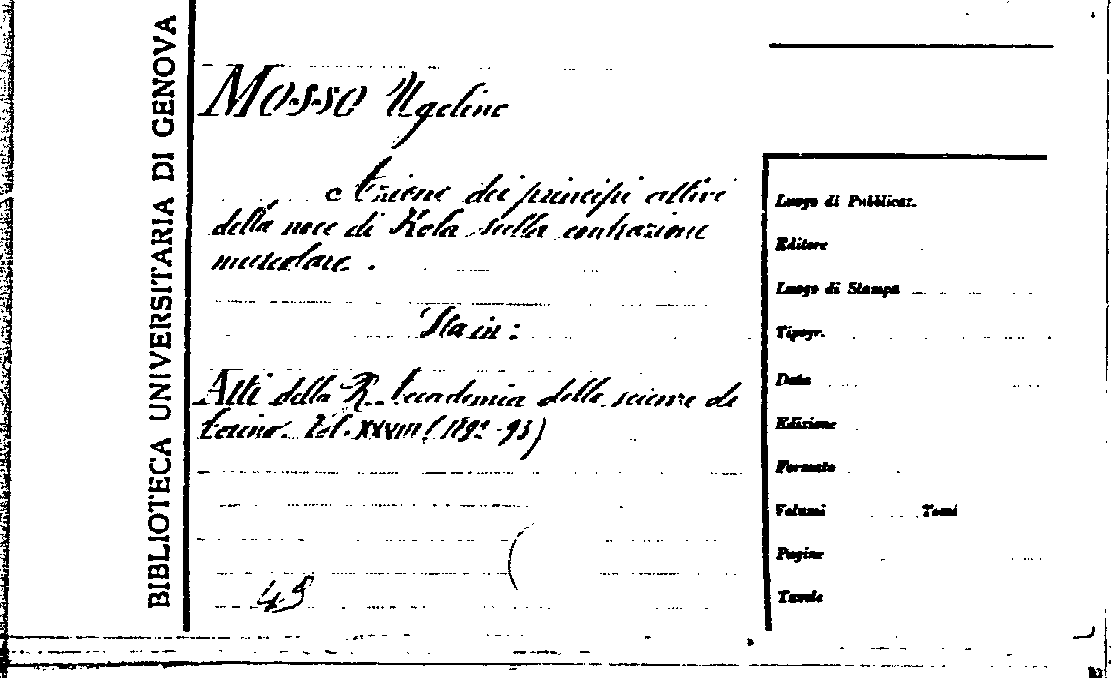 BIBLIOTECA UNIVERSITARIA DI GENOVA
MOSSO Ugolino
Azione dei principi attivi
della noce di Kola sulla contrazione
muscolare.
Sta in:
Atti della R. Accademia delle scienze di
Torino. Vol. XXVIII (1892-93)
Luogo di Pubblicaz.
Editore
Luogo di Stampa
Tipogr.
Data
Edizione
Formato
Volumi Tomi
Pagine
Tavole